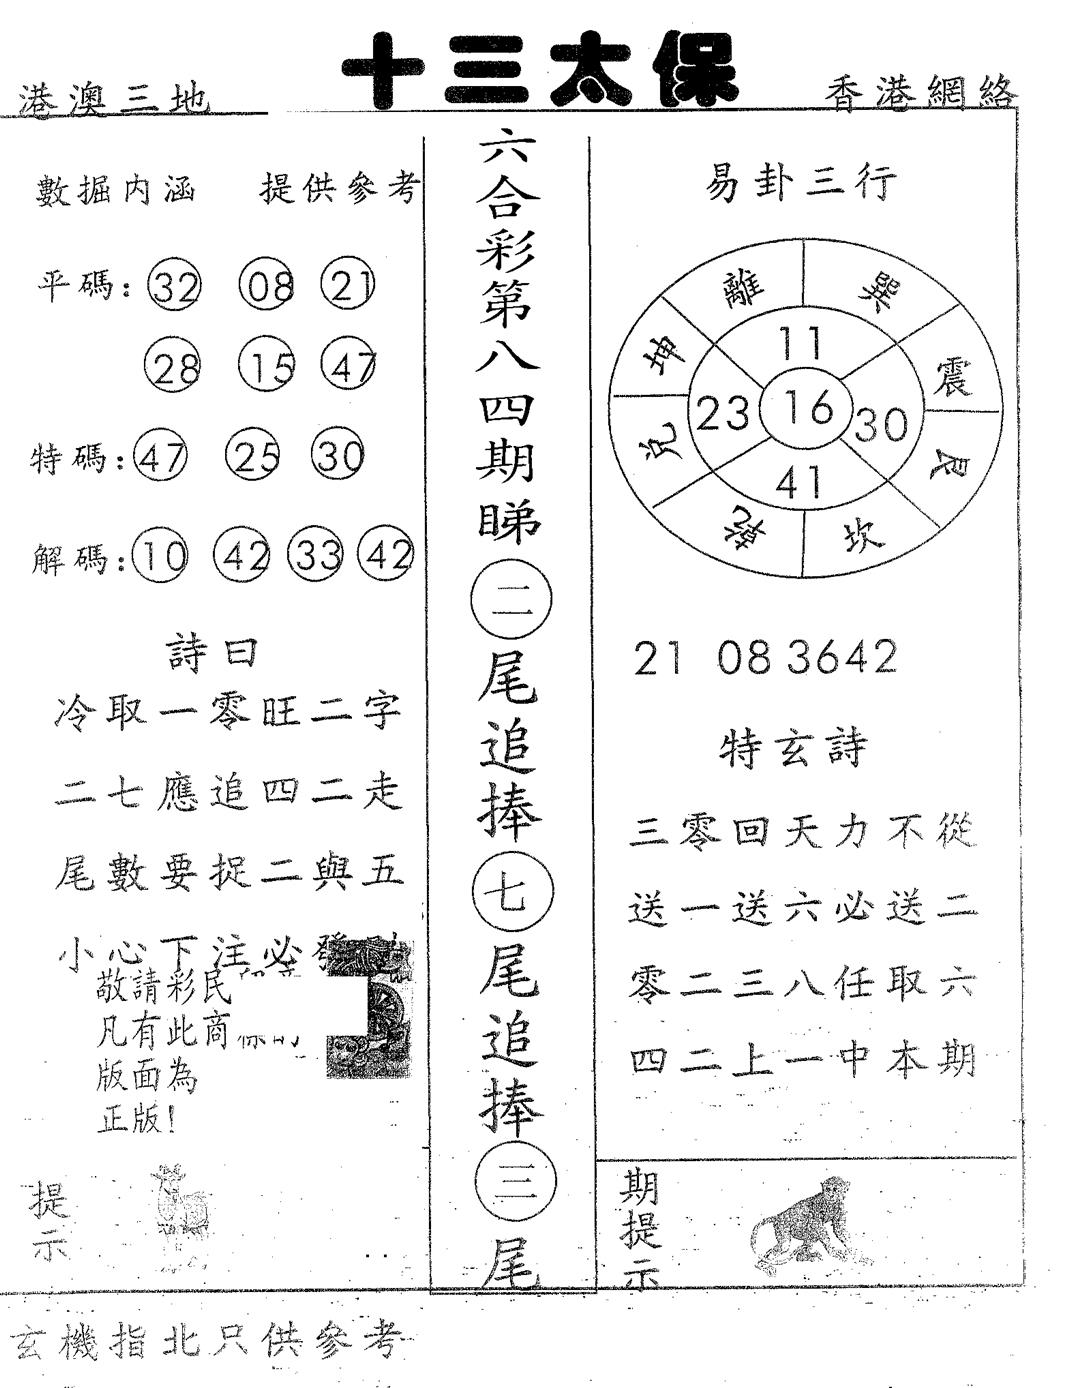 十三太保
港澳三地
香港網絡
數掘内涵 提供參考
平碼: 32 08 21
28 15 47
特碼: 47 25 30
解碼: 10 42 33 42
詩曰
冷取一零旺二字
二七應追四二走
尾數要捉二與五
小心下注必發
敬請彩民
凡有此商
版面為
正版!
提示
六合彩第八四期睇二尾追捧七尾追捧三尾
易卦三行
離 巽
坤 震
兌 艮
乾 坎
11
23 16 30
41
21 08 36 42
特玄詩
三零回天力不從
送一送六必送二
零二三八任取六
四二上一中本期
期提示
玄機指北只供參考